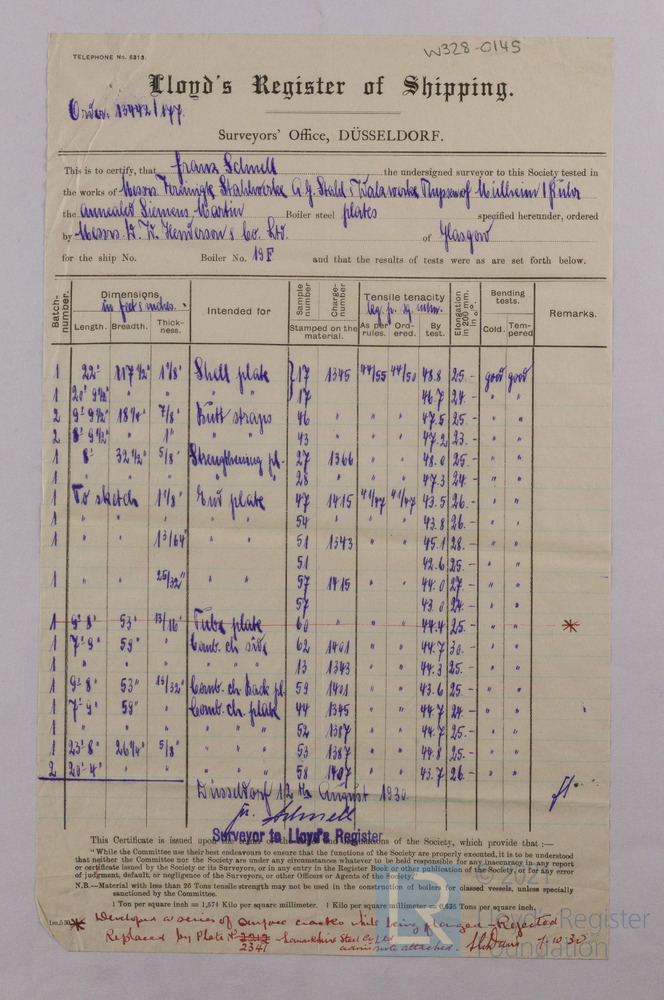 W328-0145
TELEPHONE No. 6313.
Lloyd's Register of Shipping.
Order: 13442/177.
Surveyors' Office, DÜSSELDORF.
This is to certify, that Franz Schnell the undersigned surveyor to this Society tested in
the works of Messrs. Stahlwerke A.G. Mülheim / Ruhr
the annealed Siemens-Martin Boiler steel plates specified hereunder, ordered
by Messrs. D. & W. Henderson & Co. Ltd. of Glasgow
for the ship No. Boiler No. 19F and that the results of tests were as are set forth below.
Batch-number. Dimensions in feet & inches. Length. Breadth. Thick-ness. Intended for Sample number Charge-number Stamped on the material. Tensile tenacity kg. p. sq. mm. As per rules. Ord-ered. By test. Elongation in 200 mm. in %. Bending tests. Cold. Tem-pered Remarks.
1 22' 117 1/2" 1 1/8" Shell plate 17 1345 44/55 44/50 48.8 25.- good good
1 20' 9 1/2" " " " " 17 46.7 24.- " "
2 9' 9 1/2" 18 1/4" 7/8" Butt straps 46 " " " 47.5 25.- " "
2 8' 9 1/2" " 1" " " 43 " " " 47.2 23.- " "
1 8' 32 1/2" 5/8" Strengthening pl. 27 1366 " " 48.0 25.- " "
1 " " " " " 28 " " " 47.3 24.- " "
1 To sketch 1 1/8" End plate 47 1415 41/47 41/47 43.5 26.- " "
1 " " " " " 54 " " " 43.8 26.- " "
1 " " 1 3/64" " " 51 1343 " " 45.1 28.- " "
51 42.6 25.- " "
1 " " 25/32" " " 57 1415 " " 44.0 27.- " "
57 43.0 24.- " "
1 9' 8" 53" 13/16" Tube plate 60 " " " 44.4 25.- " " *
1 7' 9" 59" " Comb. ch side 62 1401 " " 44.7 30.- " "
1 " " " " " " 13 1343 " " 44.3 25.- " "
1 9' 8" 53" 15/32" Comb. ch back pl. 59 1401 " " 43.6 25.- " "
1 7' 9" 59" " Comb. ch. plate 44 1345 " " 44.7 24.- " "
1 " " " " " " 52 1387 " " 44.7 25.- " "
1 23' 8" 26 1/4" 5/8" " " " 53 1387 " " 44.8 25.- " "
2 20' 4" " " " " " 58 1407 " " 43.7 26.- " "
Düsseldorf 12th August 1930.
Fr. Schnell
Surveyor to Lloyd's Register
This Certificate is issued upon the terms of the of the Society, which provide that :—
"While the Committee use their best endeavours to ensure that the functions of the Society are properly executed, it is to be understood
that neither the Committee nor the Society are under any circumstances whatever to be held responsible for any inaccuracy in any report
or certificate issued by the Society or its Surveyors, or in any entry in the Register Book or other publication of the Society, or for any error
of judgment, default, or negligence of the Surveyors, or other Officers or Agents of the Society."
N.B.—Material with less than 26 Tons tensile strength may not be used in the construction of boilers for classed vessels, unless specially
sanctioned by the Committee.
1 Ton per square inch = 1,574 Kilo per square millimeter. 1 Kilo per square millimeter = 0,635 Tons per square inch.
* Developed a series of surface cracks while being flanged - Rejected
Replaced by Plate No 2313 2341 Lanarkshire Steel Co Ltd advice note attached. 7.10.30
Lloyd's Register
Foundation